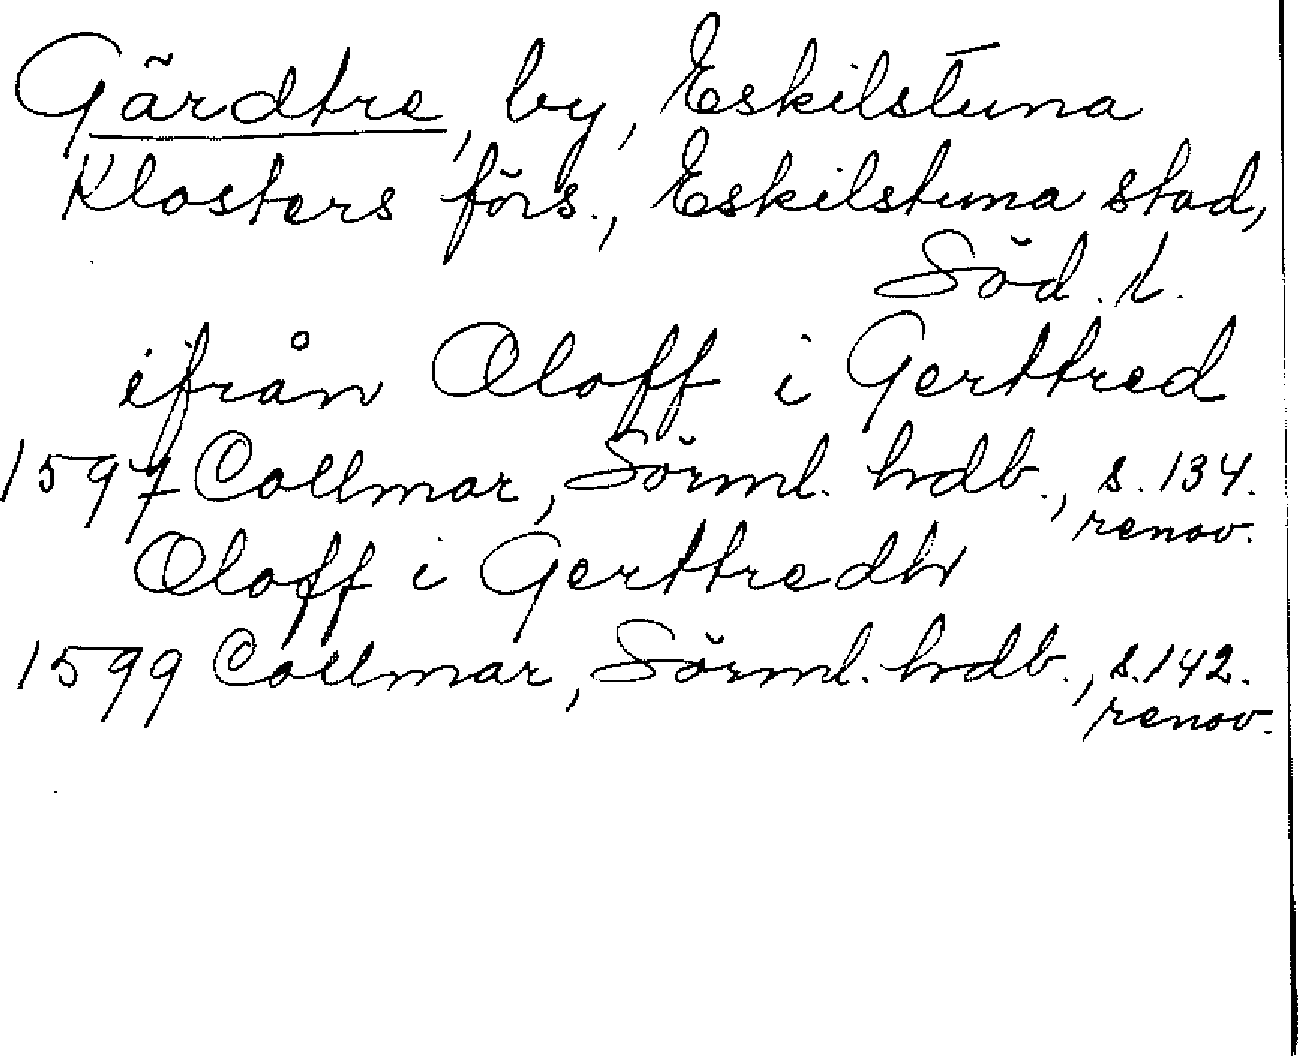 Gärdtre, by, Eskilstuna
Klosters förs., Eskilstuna stad,
Söd. l.
ifrån Oloff i Gerttred
1597 Collmar, Sörml. hdb., s. 134.
renov.
Oloff i Gerttredh
1599 Collmar, Sörml. hdb., s. 142.
renov.